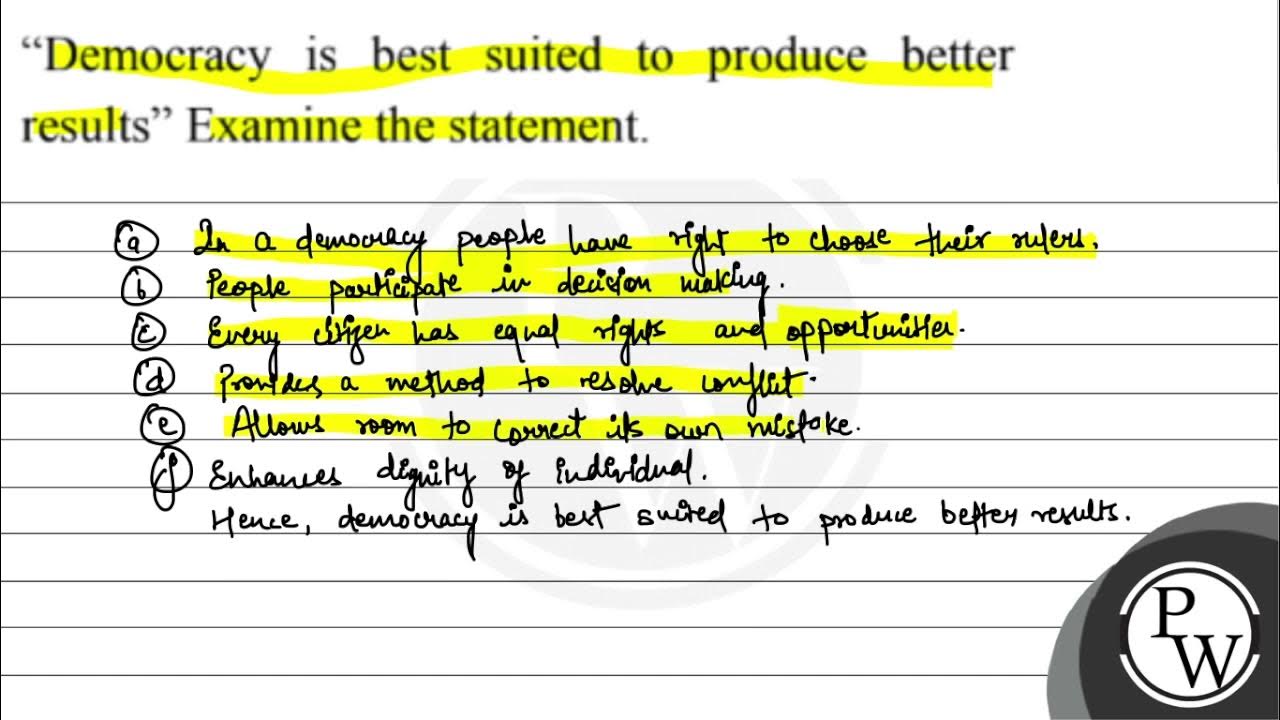 “Democracy is best suited to produce better
results” Examine the statement.
(a) In a democracy people have right to choose their rulers.
(b) People participate in decision making.
(c) Every citizen has equal rights and opportunities.
(d) Provides a method to resolve conflict.
(e) Allows room to correct its own mistake.
(f) Enhances dignity of individual.
Hence, democracy is best suited to produce better results.
P
W